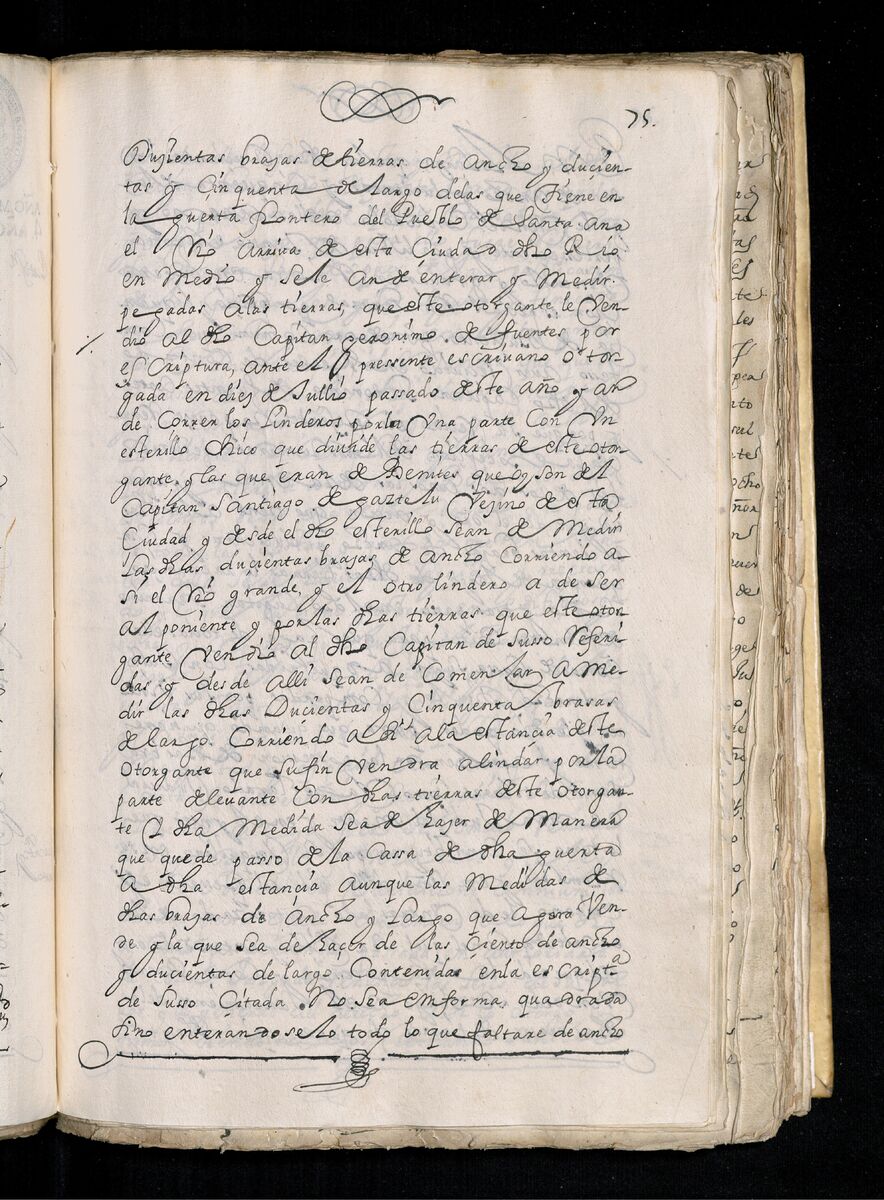 75.
Dusientas brasas de tierras de ancho y ducien-
tas y Cinquenta de largo delas que tiene en
la guerta frontero del Pueblo de Santa ana
el Rio arriva de esta Ciudad dho Rio
en Medio y sele an de enterar y Medir
pegadas alas tierras, que este otorgante le Ven-
dio al dho Capitan geronimo de fuentes por
esCriptura, ante el pressente escrivano otor
gada en diez de Jullio passado deste año y an
de Correr los Linderos por la Una parte Con Un
esterillo chico que diuide las tierras de este otor
gante y las que eran de Benites que oy son del
Capitan Santiago de gaztelu Vezino de esta
Ciudad y desde el dho esterillo sean de Medir
Las dhas ducientas brazas de ancho Corriendo a-
si el Rio grande, y el otro lindero a de ser
al poniente y por las dhas tierras que este otor
gante Vendio al dho Capitan de Susso Referi
das y desde alli sean de Comensar a Me-
dir las dhas Ducientas y Cinquenta brasas
de largo. Corriendo a la estancia deste
otorgante que Sufin Vendra alindar por la
parte delevante Con dhas tierras deste otorgan-
te Y dha Medida sea de hazer de Manera
que quede passo de la Cassa de dha guerta
a dha estancia aunque las Medidas de
dhas brazas de Ancho y Largo que agora Ven-
de y la que sea de haçer de las Ciento de ancho
y ducientas de largo Contenidas enla escripta
de Susso Citada. No sea en forma quadrada
Sino enterandoselo todo lo que faltare de ancho